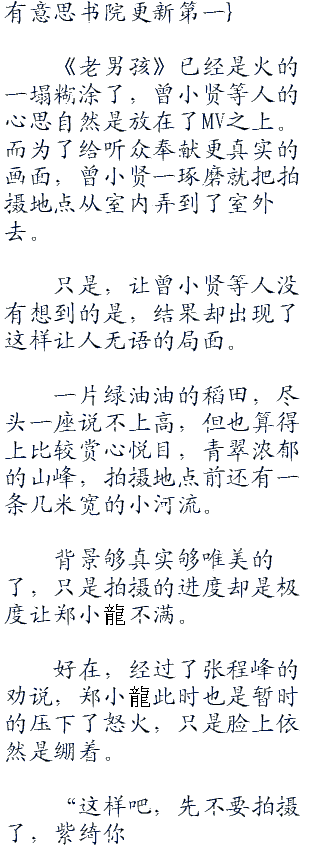 有意思书院更新第一}
《老男孩》已经是火的
一塌糊涂了，曾小贤等人的
心思自然是放在了MV之上。
而为了给听众奉献更真实的
画面，曾小贤一琢磨就把拍
摄地点从室内弄到了室外
去。
只是，让曾小贤等人没
有想到的是，结果却出现了
这样让人无语的局面。
一片绿油油的稻田，尽
头一座说不上高，但也算得
上比较赏心悦目，青翠浓郁
的山峰，拍摄地点前还有一
条几米宽的小河流。
背景够真实够唯美的
了，只是拍摄的进度却是极
度让郑小龍不满。
好在，经过了张程峰的
劝说，郑小龍此时也是暂时
的压下了怒火，只是脸上依
然是绷着。
“这样吧，先不要拍摄
了，紫绮你